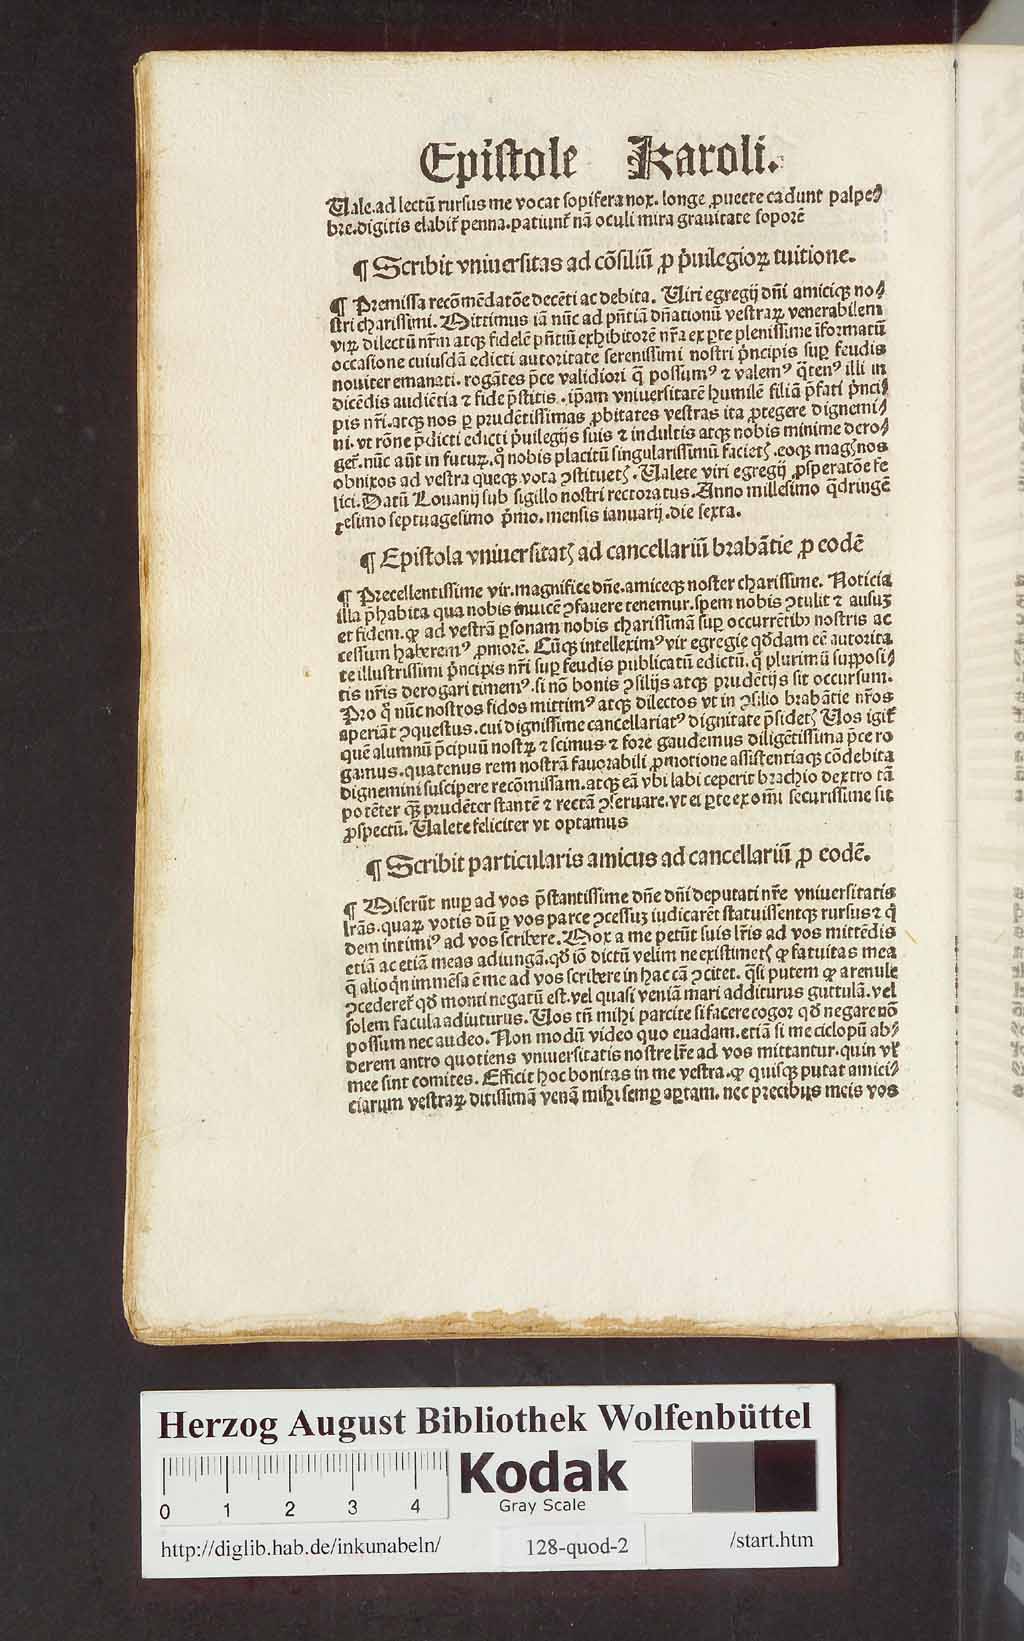 Epistole Karoli.
Uale.ad lectū rursus me vocat sopifera nox. longe ꝓuecte cadunt palpe⸗
bre.digitis elabit᷑ penna.patiunt᷑ nā oculi mira grauitate soporē
¶ Scribit vniuersitas ad cōsiliū ꝓ p̄uilegioꝝ tuitione.
¶ Premissa recōmēdatōe decēti ac debita. Uiri egregij dn̄i amiciqꝫ no⸗
stri charissimi. Mittimus iā nūc ad pn̄tiā dn̄ationū vestraꝝ venerabilem
viꝝ dilectū nr̄m atqꝫ fidelē pn̄tiū exhibitorē nr̄a ex ꝑte plenissime īformatū
occasione cuiusdā edicti autoritate serenissimi nostri p̄ncipis suꝑ feudis
nouiter emanati. rogātes p̄ce validiori q̄ possumꝰ ⁊ valemꝰ q̄tenꝰ illi in
dicēdis audiētia ⁊ fide p̄stitis. ip̄am vniuersitatē humilē filiā p̄fati p̄nci⸗
pis nr̄i.atqꝫ nos ꝑ prudētissimas ꝓbitates vestras ita ꝓtegere dignemi⸗
ni. vt rōne p̄dicti edicti p̄uilegijs suis ⁊ indultis atqꝫ nobis minime dero⸗
get᷑. nūc aūt in futuꝝ. qď nobis placitū singularissimū facietꝭ. eoqꝫ magꝭ nos
obnixos ad vestra queqꝫ vota ꝯstituetꝭ. Ualete viri egregij ꝓsperatōe fe
lici. Datū Louanij sub sigillo nostri rectoratus. Anno millesimo q̄dringē
tesimo septuagesimo p̄mo. mensis ianuarij. die sexta.
¶ Epistola vniuersitatꝭ ad cancellariū brabātie ꝓ eodē
¶ Precellentissime vir. magnifice dn̄e. amiceqꝫ noster charissime. Noticia
illa p̄habita qua nobis inuicē ꝯfauere tenemur. spem nobis ꝯtulit ⁊ ausuꝫ
et fidem. ꝙ ad vestrā ꝑsonam nobis charissimā suꝑ occurrētibꝰ nostris ac
cessum haberemꝰ ꝓmorē. Cūqꝫ intelleximꝰ vir egregie qďdam eē autorita
te illustrissimi p̄ncipis nr̄i suꝑ feudis publicatū edictū. qď plurimū supposi⸗
tis nr̄is derogari timemꝰ. si nō bonis ꝯsilijs atqꝫ prudētijs sit occursum.
Pro qď nūc nostros fidos mittimꝰ atqꝫ dilectos vt in ꝯsilio brabātie nr̄os
aperiāt ꝯquestus. cui dignissime cancellariatꝰ dignitate p̄sidetꝭ Uos igit᷑
quē alumnū p̄cipuū nostꝝ ⁊ scimus ⁊ fore gaudemus diligētissima p̄ce ro
gamus. quatenus rem nostrā fauorabili ꝓmotione assistentiaqꝫ cōdebita
dignemini suscipere recōmissam. atqꝫ eā vbi labi ceperit brachio dextro tā
potēter q̄ꝫ prudēter stantē ⁊ rectā ꝯseruare. vt ei ꝑte ex om̄i securissime sit
ꝓspectū. Ualete feliciter vt optamus
¶ Scribit particularis amicus ad cancellariū ꝓ eodē.
¶ Miserūt nuꝑ ad vos p̄stantissime dn̄e dn̄i deputati nr̄e vniuersitatis
lr̄as. quaꝝ votis dū ꝑ vos parce ꝯcessuꝫ iudicarēt statuissentqꝫ rursus ⁊ q̇
dem intimiꝰ ad vos scribere. Mox a me petūt suis lr̄is ad vos mittēdis
etiā ac etiā meas adiungā. qď iō dictū velim ne existimetꝭ ꝙ fatuitas mea
q̄ alioq̇n immēsa ē me ad vos scribere in hac cā ꝯcitet. q̄si putem ꝙ arenule
ꝯcederet᷑ qď monti negatū est. vel quasi veniā mari additurus guttulā. vel
solem facula adiuturus. Uos tn̄ mihi parcite si facere cogor qď negare nō
possum nec audeo. Non modū video quo euadam. etiā si me ciclopū ab⸗
derem antro quotiens vniuersitatis nostre lr̄e ad vos mittantur. quin vꝉ
mee sint comites. Efficit hoc bonitas in me vestra. ꝙ quisqꝫ putat amici⸗
ciarum vestraꝝ ditissimā venā mihi semꝑ aꝑtam. nec precibus meis vos
Herzog August Bibliothek Wolfenbüttel
0 1 2 3 4
Kodak
Gray Scale
http://diglib.hab.de/inkunabeln/ 128-quod-2 /start.htm